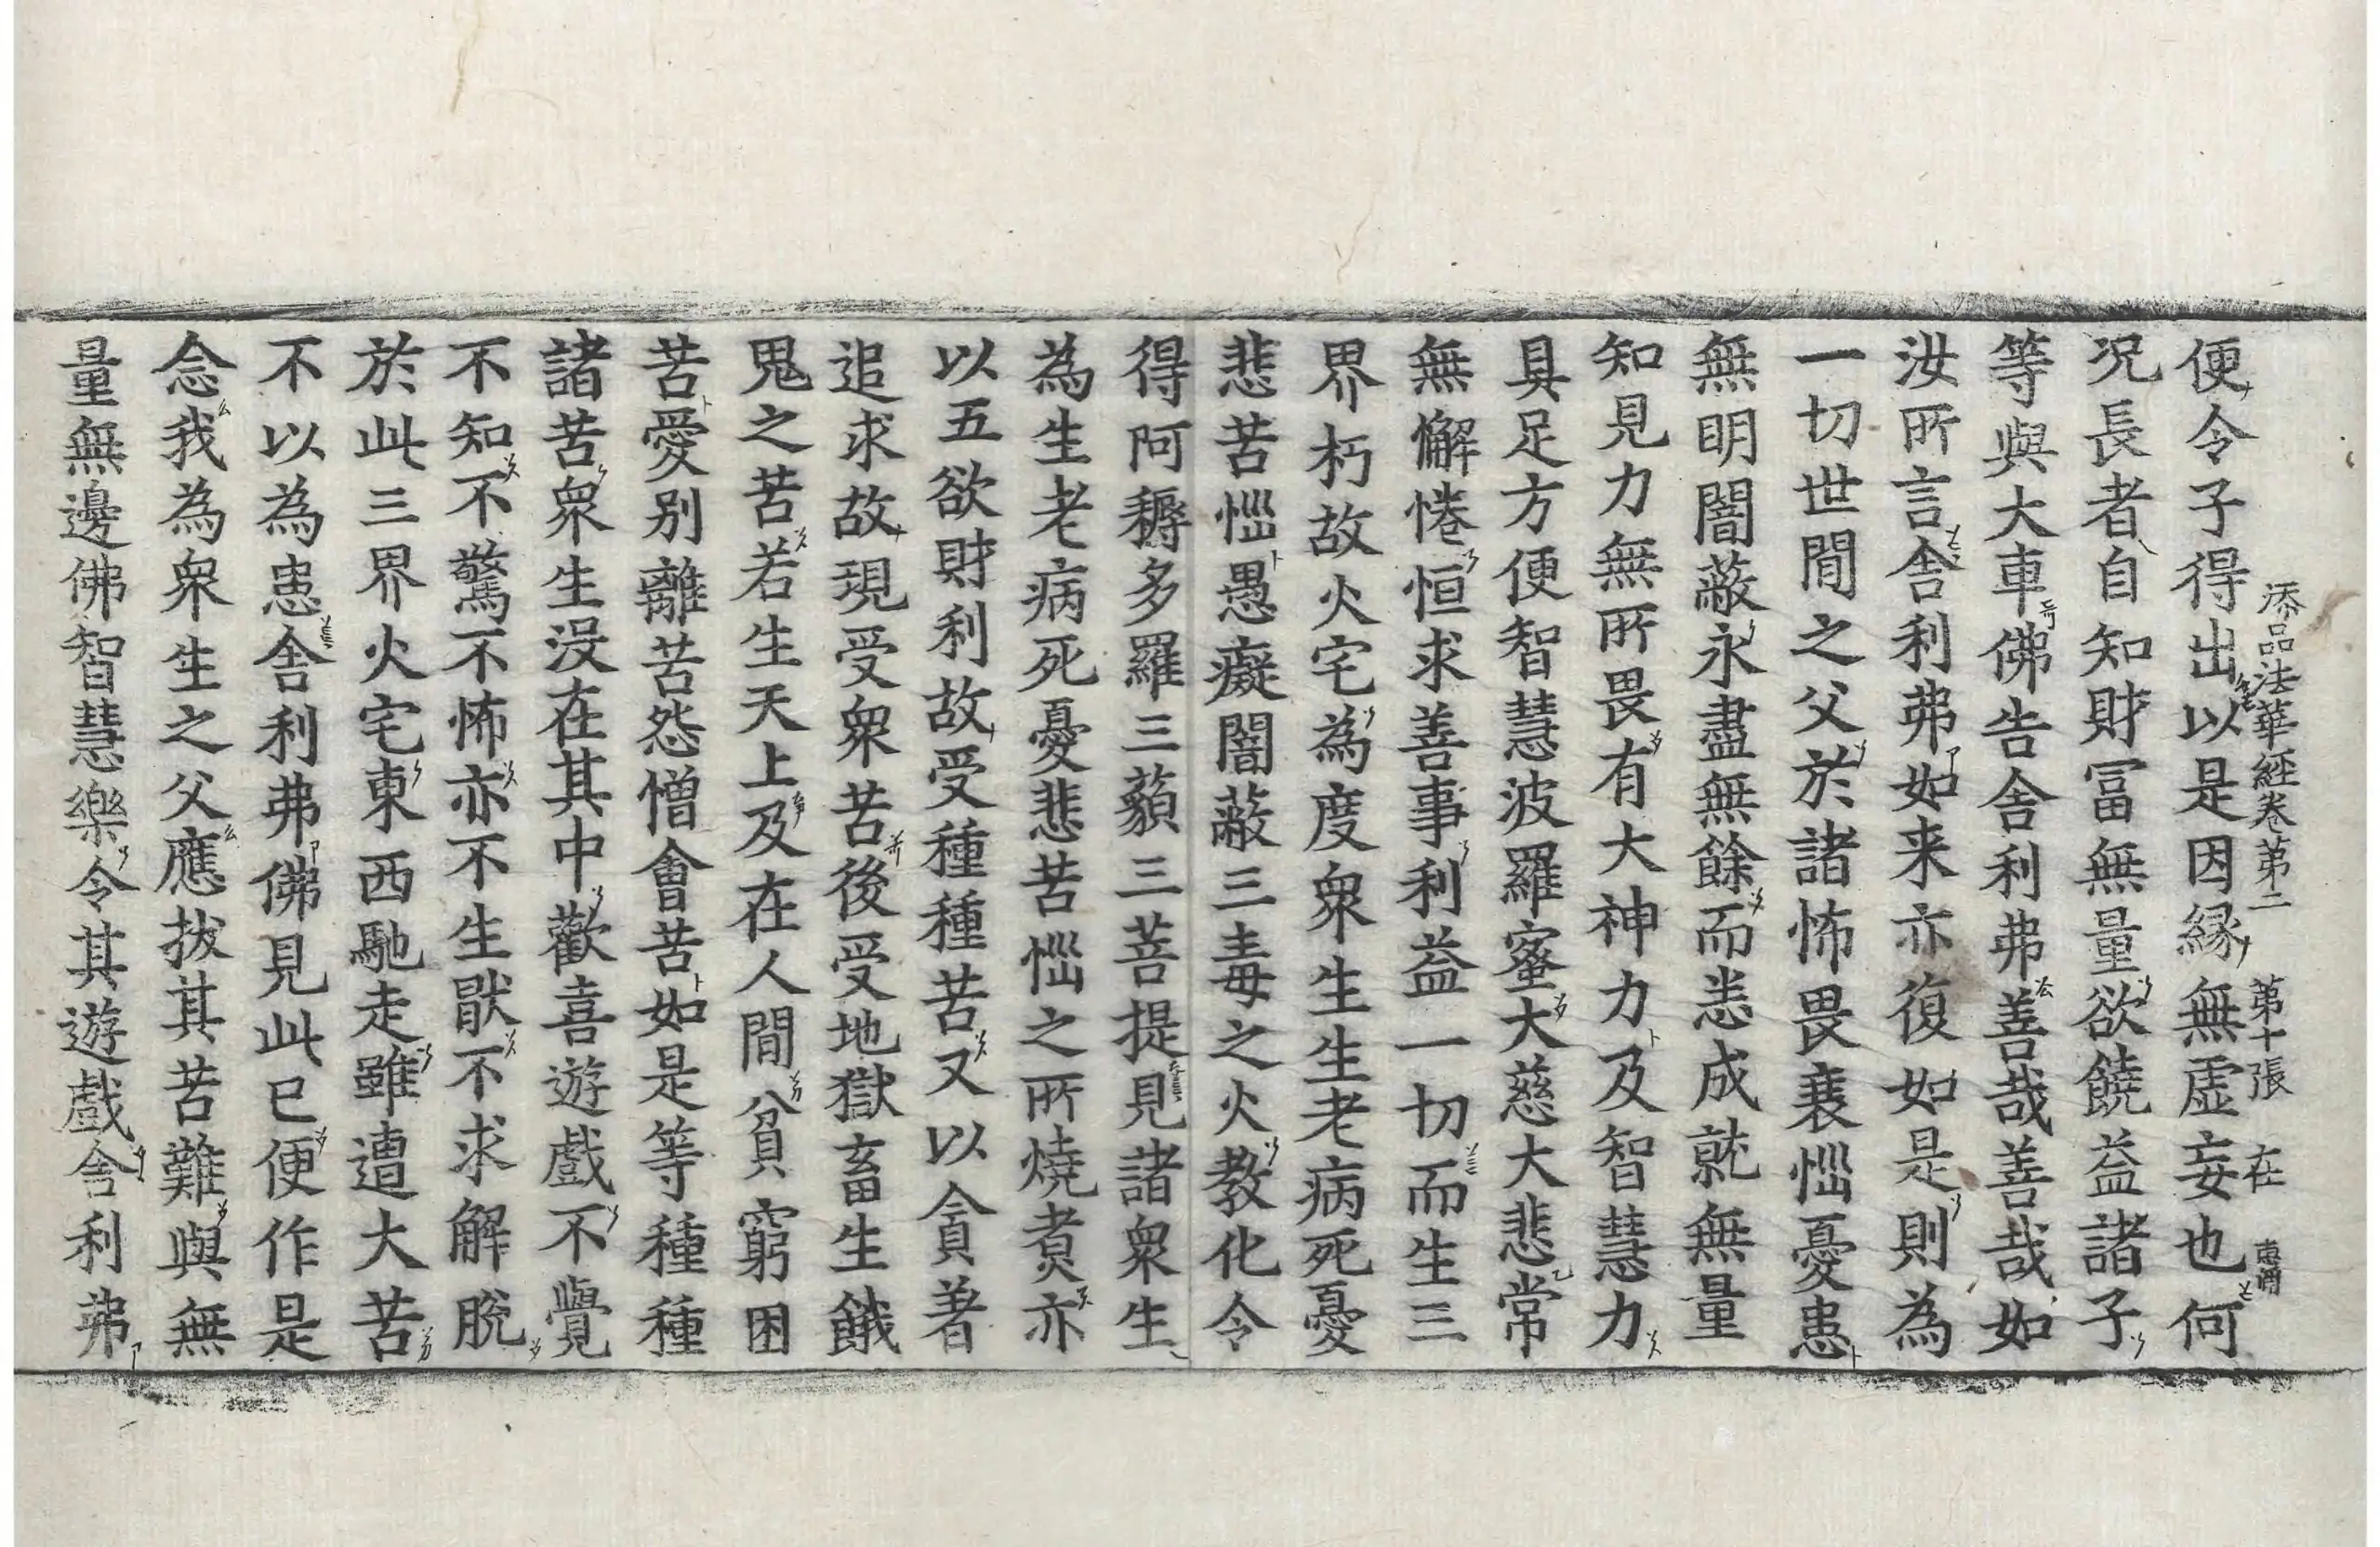 添品法華經卷第二 第十張 在
便令子得出以是因緣無虛妄也何
況長者自知財冨無量欲饒益諸子
等與大車佛告舍利弗善哉善哉如
汝所言舍利弗如来亦復如是則為
一切世間之父於諸怖畏衰惱憂患
無明闇蔽永盡無餘而悉成就無量
知見力無所畏有大神力及智慧力
具足方便智慧波羅蜜大慈大悲常
無懈惓恒求善事利益一切而生三
界朽故火宅為度衆生生老病死憂
悲苦惱愚癡闇蔽三毒之火教化令
得阿耨多羅三藐三菩提見諸衆生
為生老病死憂悲苦惱之所燒煑亦
以五欲財利故受種種苦又以貪著
追求故現受衆苦後受地獄畜生餓
鬼之苦若生天上及在人間貧窮困
苦愛別離苦怨憎會苦如是等種種
諸苦衆生没在其中歡喜遊戲不覺
不知不驚不怖亦不生猒不求解脫
於此三界火宅東西馳走雖遭大苦
不以為患舍利弗佛見此已便作是
念我為衆生之父應拔其苦難與無
量無邊佛智慧樂令其遊戲舍利弗